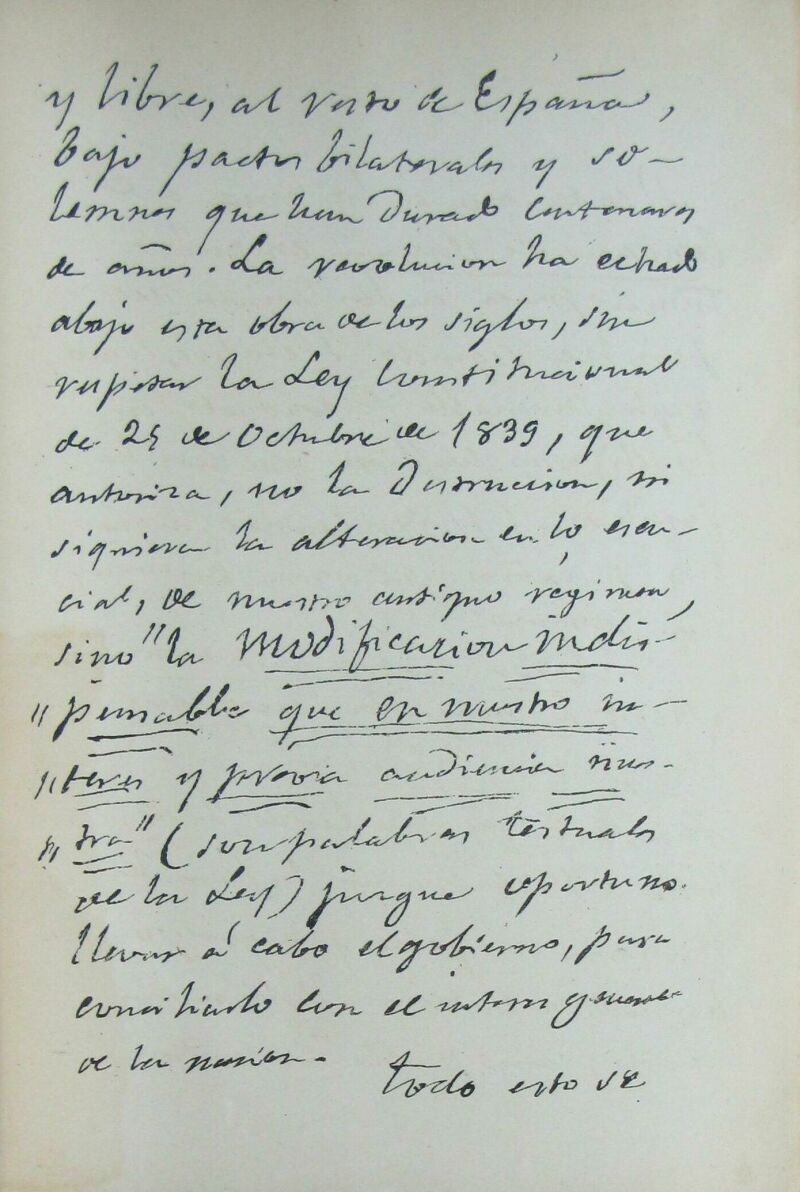 y libre, al resto de España,
bajo pactos bilaterales y so-
lemnes que han durado centenares
de años. La revolucion ha echado
abajo esta obra de los siglos, sin
respetar la Ley Constitucional
de 25 de Octubre de 1839, que
autoriza, no la Destruccion, ni
siquiera la alteracion en lo esen-
cial, de nuestro antiguo régimen,
sino "la modificacion indis-
"pensable que en nuestro in-
"teres y previa audiencia nues-
"tra" (son palabras testuales
de la Ley) juzgue oportuno
llevar á cabo el gobierno, para
conciliarlo con el interes general
de la nacion.
todo esto se